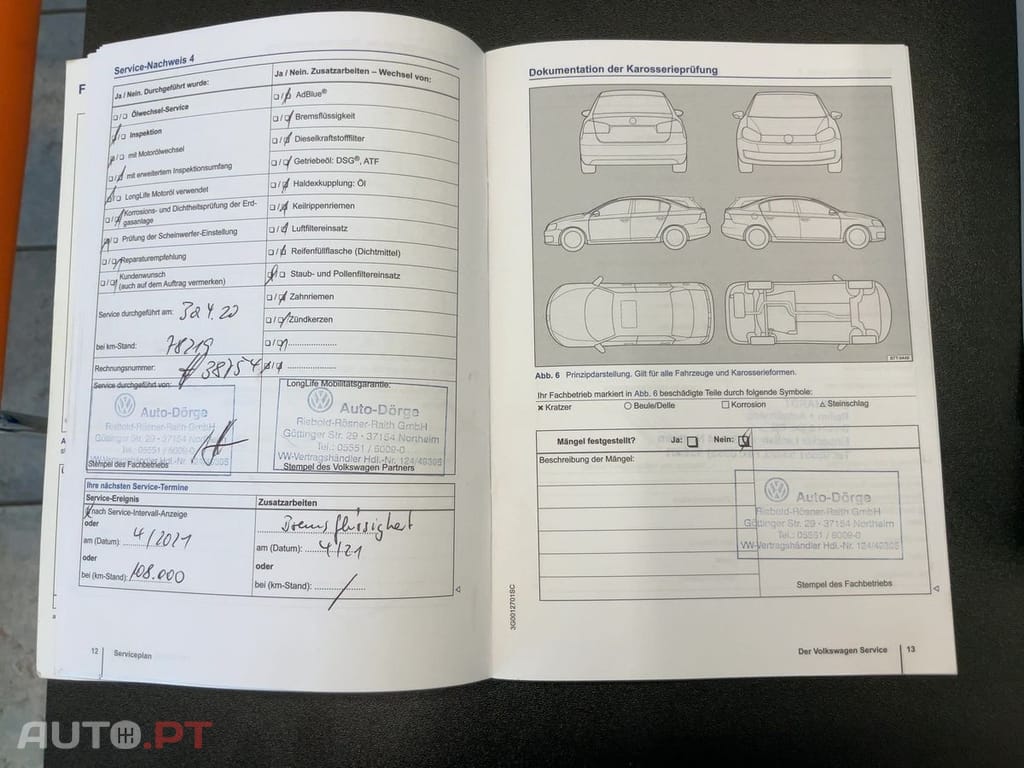 Service-Nachweis 4
Ja / Nein. Durchgeführt wurde:
Ölwechsel-Service
Inspektion
mit Motorölwechsel
mit erweitertem Inspektionsumfang
LongLife Motoröl verwendet
Korrosions- und Dichtheitsprüfung der Erd-
gasanlage
Prüfung der Scheinwerfer-Einstellung
Reparaturempfehlung
Kundenwunsch
(auch auf dem Auftrag vermerken)
Service durchgeführt am:
bei km-Stand: 78219
Rechnungsnummer:
Service durchgeführt von:
Auto-Dörge
Riebold-Rösner-Raith GmbH
Göttinger Str. 29 - 37154 Northeim
Tel.: 05551 / 6009-0
VW-Vertragshändler Hdl.-Nr. 124/49305
Stempel des Fachbetriebs
Ja / Nein. Zusatzarbeiten – Wechsel von:
AdBlue®
Bremsflüssigkeit
Dieselkraftstofffilter
Getriebeöl: DSG®, ATF
Haldexkupplung: Öl
Keilrippenriemen
Luftfiltereinsatz
Reifenfüllflasche (Dichtmittel)
Staub- und Pollenfiltereinsatz
Zahnriemen
Zündkerzen
LongLife Mobilitätsgarantie:
Auto-Dörge
Riebold-Rösner-Raith GmbH
Göttinger Str. 29 - 37154 Northeim
Tel.: 05551 / 6009-0
VW-Vertragshändler Hdl.-Nr. 124/49305
Stempel des Volkswagen Partners
Ihre nächsten Service-Termine
Service-Ereignis
nach Service-Intervall-Anzeige
oder
am (Datum): 4/2021
oder
bei (km-Stand): 108.000
Zusatzarbeiten
Bremsflüssigkeit
am (Datum): 4/21
oder
bei (km-Stand):
12 Serviceplan
Dokumentation der Karosserieprüfung
Abb. 6 Prinzipdarstellung. Gilt für alle Fahrzeuge und Karosserieformen.
Ihr Fachbetrieb markiert in Abb. 6 beschädigte Teile durch folgende Symbole:
Kratzer Beule/Delle Korrosion Steinschlag
Mängel festgestellt? Ja: Nein:
Beschreibung der Mängel:
Auto-Dörge
Riebold-Rösner-Raith GmbH
Göttinger Str. 29 - 37154 Northeim
Tel.: 05551 / 6009-0
VW-Vertragshändler Hdl.-Nr. 124/49305
Stempel des Fachbetriebs
3G0012701SC
Der Volkswagen Service 13
AUTO.PT